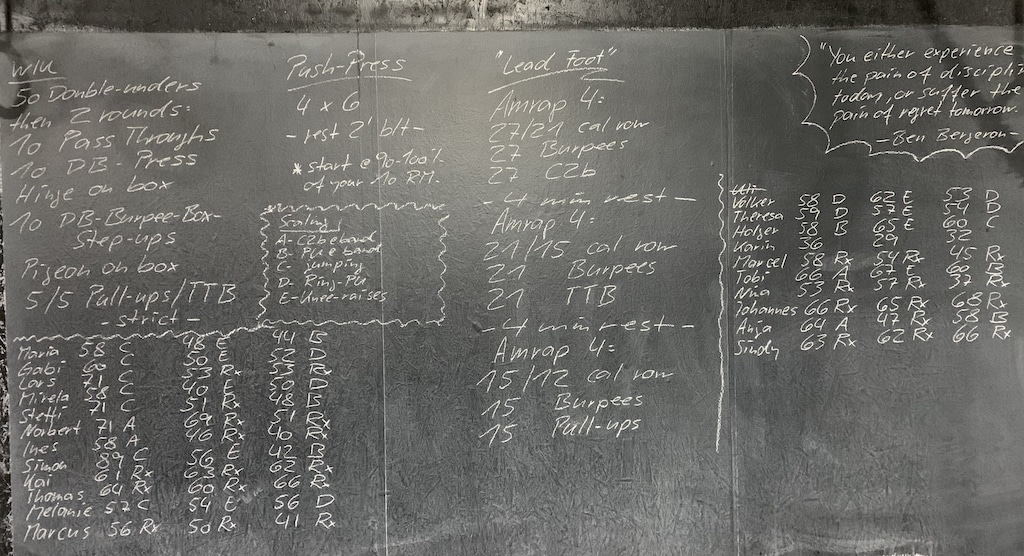 WU
50 Double-unders
then 2 rounds:
10 Pass Throughs
10 DB-Press
Hinge on box
10 DB-Burpee-Box-
Step-ups
Pigeon on box
5/5 Pull-ups/TTB
- strict -
Push-Press
4 x 6
- rest 2' b/t -
* start @ 90-100%
of your 10 RM.
Scaling
A - C2b band
B - PU band
C - Jumping
D - Ring-PU
E - Knee-raises
"Lead Foot"
Amrap 4:
27/21 cal row
27 Burpees
27 C2b
- 4 min rest -
Amrap 4:
21/15 cal row
21 Burpees
21 TTB
- 4 min rest -
Amrap 4:
15/12 cal row
15 Burpees
15 Pull-ups
"You either experience
the pain of discipli
today, or suffer the
pain of regret tomorrow.
- Ben Bergeron -
Maria 58 C 48 E 44 B
Gabi 60 C 50 E 52 D
Lars 71 C 53 Rx 53 Rx
Mirela 58 C 40 E 50 D
Steffi 71 C 51 Rx 48 B
Norbert 71 A 69 Rx 51 Rx
Ines 58 A 46 Rx 40 Rx
Simon 89 C 56 E 42 B
Kai 61 Rx 63 Rx 62 Rx
Thomas 64 Rx 60 Rx 66 Rx
Melanie 57 C 54 E 56 D
Marcus 56 Rx 50 Rx 41 Rx
Volker 58 D 62 E 53 D
Theresa 59 D 57 E 54 D
Holger 58 B 65 E 60 C
Karin 36 29 32
Marcel 58 Rx 54 Rx 45 Rx
Tobi 66 A 67 E 60 B
Nina 53 Rx 57 Rx 37 Rx
Johannes 66 Rx 65 Rx 68 Rx
Anja 64 A 47 Rx 58 B
Sindy 63 Rx 62 Rx 66 Rx